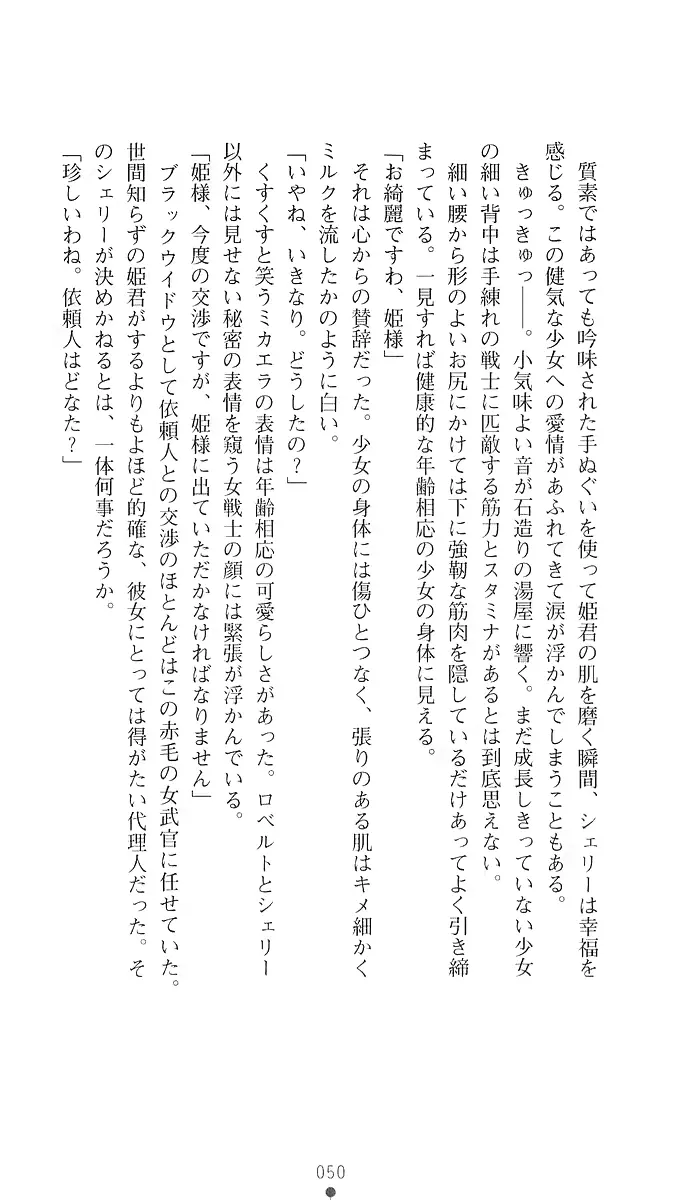 質素ではあっても吟味された手ぬぐいを使って姫君の肌を磨く瞬間、シェリーは幸福を
感じる。この健気な少女への愛情があふれてきて涙が浮かんでしまうこともある。
きゅっきゅっ――。小気味よい音が石造りの湯屋に響く。まだ成長しきっていない少女
の細い背中は手練れの戦士に匹敵する筋力とスタミナがあるとは到底思えない。
細い腰から形のよいお尻にかけては下に強靭な筋肉を隠しているだけあってよく引き締
まっている。一見すれば健康的な年齢相応の少女の身体に見える。
「お綺麗ですわ、姫様」
それは心からの賛辞だった。少女の身体には傷ひとつなく、張りのある肌はキメ細かく
ミルクを流したかのように白い。
「いやね、いきなり。どうしたの？」
くすくすと笑うミカエラの表情は年齢相応の可愛らしさがあった。ロベルトとシェリー
以外には見せない秘密の表情を窺う女戦士の顔には緊張が浮かんでいる。
「姫様、今度の交渉ですが、姫様に出ていただかなければなりません」
ブラックウイドウとして依頼人との交渉のほとんどはこの赤毛の女武官に任せていた。
世間知らずの姫君がするよりもよほど的確な、彼女にとっては得がたい代理人だった。そ
のシェリーが決めかねるとは、一体何事だろうか。
「珍しいわね。依頼人はどなた？」
050